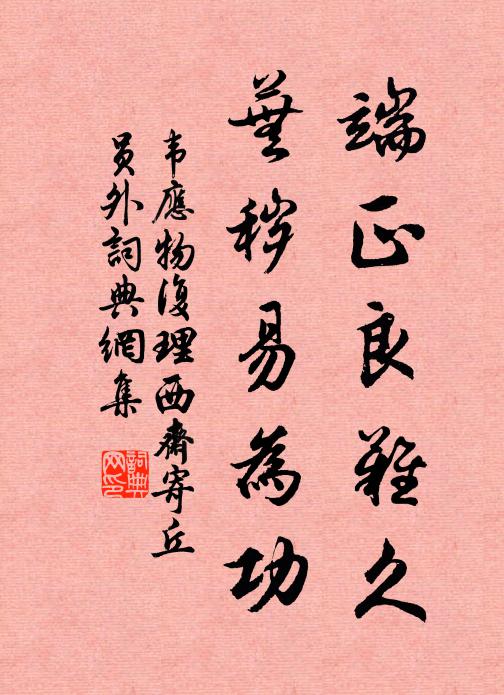 端正良難久
蕪穢易為功
韦應物復理西齋寄丘
员外詞典網集
詞典网印